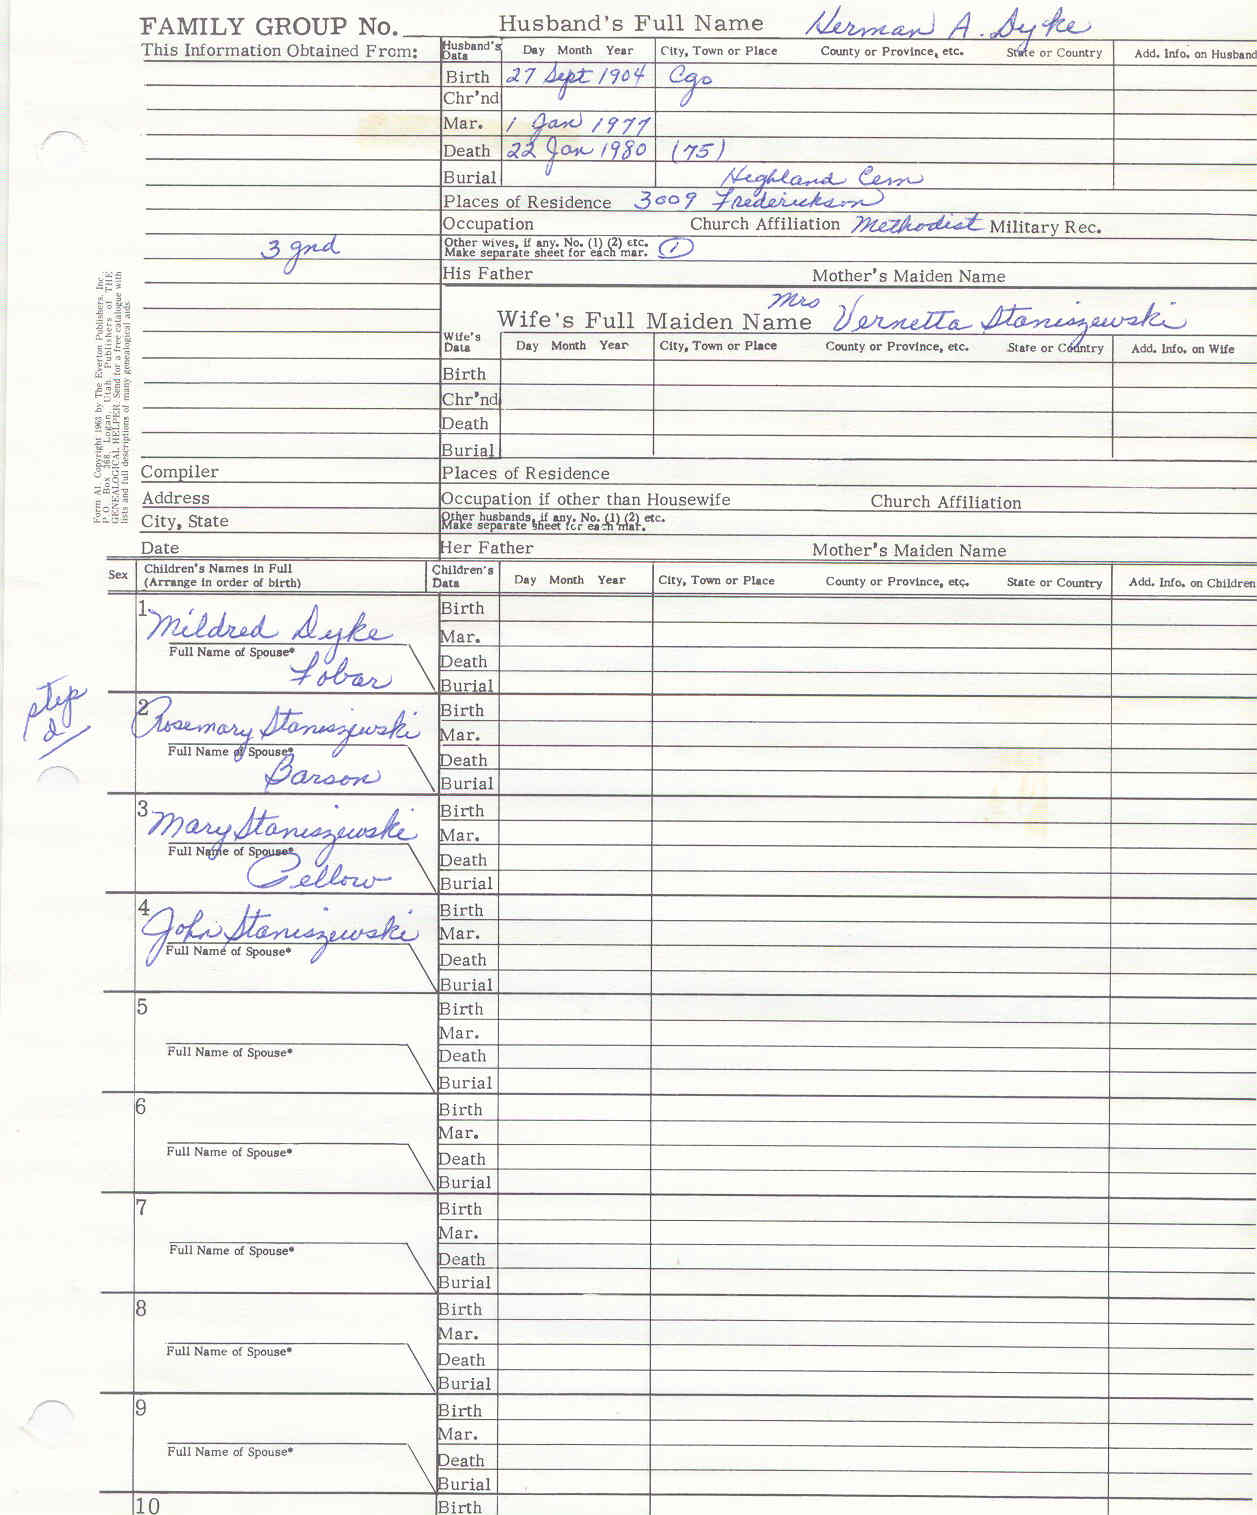 FAMILY GROUP No.
Husband's Full Name Herman A. Dyke
This Information Obtained From:
Husband's Data Day Month Year City, Town or Place County or Province, etc. State or Country Add. Info. on Husband
Birth 27 Sept 1904 Cgo
Chr'nd
Mar. 1 Jan 1977
Death 22 Jan 1980 (75)
Burial Highland Cem
Places of Residence 3009 Frederickson
Occupation Church Affiliation Methodist Military Rec.
3 gnd
Other wives, if any. No. (1) (2) etc.
Make separate sheet for each mar. 1
His Father Mother's Maiden Name
Mrs
Wife's Full Maiden Name Vernetta Staniszewski
Wife's Data Day Month Year City, Town or Place County or Province, etc. State or Country Add. Info. on Wife
Birth
Chr'nd
Death
Burial
Form A1. Copyright 1963 by The Everton Publishers, Inc.
P.O. Box 368, Logan, Utah. Publishers of THE
GENEALOGICAL HELPER. Send for a free catalogue with
lists and full descriptions of many genealogical aids
Compiler Places of Residence
Address Occupation if other than Housewife Church Affiliation
City, State Other husbands, if any. No. (1) (2) etc.
Make separate sheet for each mar.
Date Her Father Mother's Maiden Name
Sex Children's Names in Full
(Arrange in order of birth)
Children's Data Day Month Year City, Town or Place County or Province, etc. State or Country Add. Info. on Children
1 Birth
Mildred Dyke Mar.
Full Name of Spouse* Death
Fobar Burial
step
d
2 Birth
Rosemary Staniszewski Mar.
Full Name of Spouse* Death
Barson Burial
3 Birth
Mary Staniszewski Mar.
Full Name of Spouse* Death
Pellow Burial
4 Birth
John Staniszewski Mar.
Full Name of Spouse* Death
Burial
5 Birth
Mar.
Full Name of Spouse* Death
Burial
6 Birth
Mar.
Full Name of Spouse* Death
Burial
7 Birth
Mar.
Full Name of Spouse* Death
Burial
8 Birth
Mar.
Full Name of Spouse* Death
Burial
9 Birth
Mar.
Full Name of Spouse* Death
Burial
10 Birth